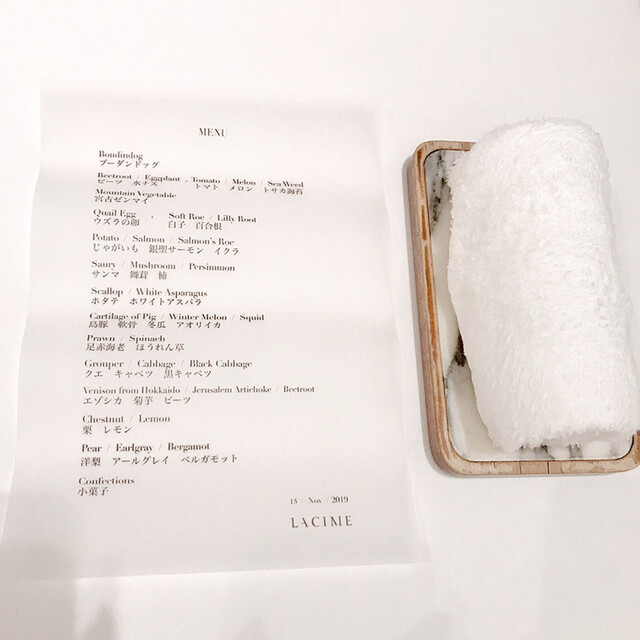 MENU
Boudindog
ブーダンドッグ
Beetroot / Eggplant . Tomato / Melon / Sea Weed
ビーツ 水ナス トマト メロン トサカ海苔
Mountain Vegetable
宮古ゼンマイ
Quail Egg . Soft Roe / Lilly Root
ウズラの卵 白子 百合根
Potato / Salmon / Salmon's Roe
じゃがいも 銀聖サーモン イクラ
Saury / Mushroom / Persimmon
サンマ 舞茸 柿
Scallop / White Asparagus
ホタテ ホワイトアスパラ
Cartilage of Pig / Winter Melon / Squid
島豚 軟骨 冬瓜 アオリイカ
Prawn / Spinach
足赤海老 ほうれん草
Grouper / Cabbage / Black Cabbage
クエ キャベツ 黒キャベツ
Venison from Hokkaido / Jerusalem Artichoke / Beetroot
エゾシカ 菊芋 ビーツ
Chestnut / Lemon
栗 レモン
Pear / Earlgray / Bergamot
洋梨 アールグレイ ベルガモット
Confections
小菓子
15 / Nov / 2019
LACIME